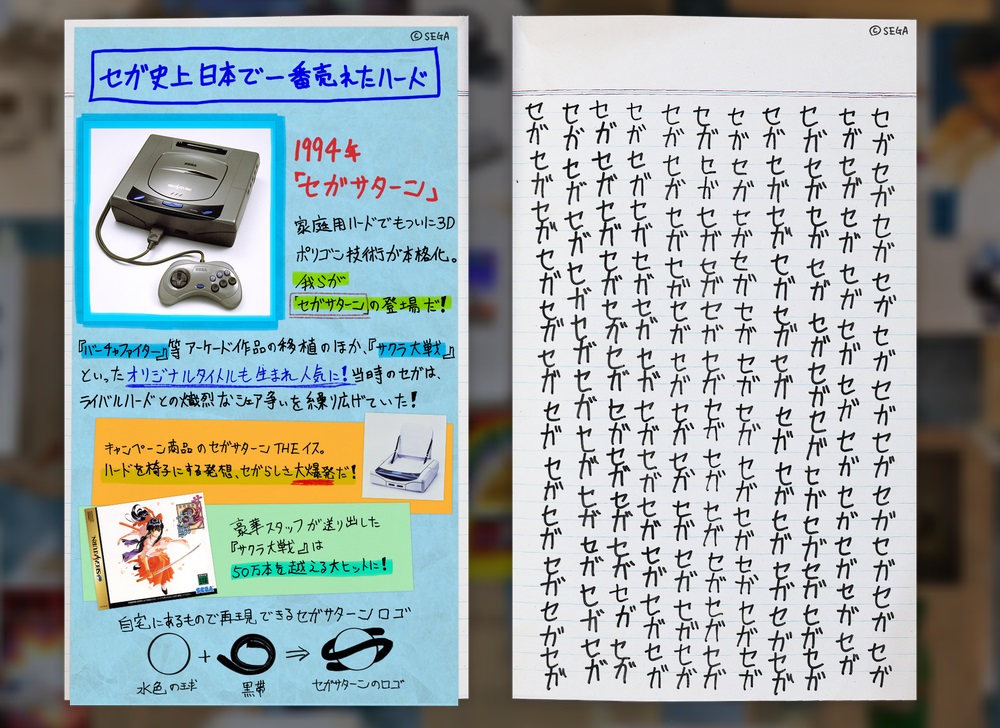 ©SEGA
セガ史上日本で一番売れたハード
1994年
「セガサターン」
家庭用ハードでもついに3D
ポリゴン技術が本格化。
我らが
「セガサターン」の登場だ!
『バーチャファイター』等アーケード作品の移植のほか、『サクラ大戦』
といったオリジナルタイトルも生まれ人気に!当時のセガは、
ライバルハードとの熾烈なシェア争いを繰り広げていた!
キャンペーン商品のセガサターンTHEイス。
ハードを椅子にする発想、セガらしさ大爆発だ!
SEGA SATURN
SEGA
豪華スタッフが送り出した
『サクラ大戦』は
50万本を越える大ヒットに!
自宅にあるもので再現できるセガサターンロゴ
+ ⇒
水色の球 黒帯 セガサターンのロゴ
©SEGA
セガセガセガセガセガセガセガセガセガセガセガセガ
セガセガセガセガセガセガセガセガセガセガセガセガ
セガセガセガセガセガセガセガセガセガセガセガセガ
セガセガセガセガセガセガセガセガセガセガセガセガ
セガセガセガセガセガセガセガセガセガセガセガセガ
セガセガセガセガセガセガセガセガセガセガセガセガ
セガセガセガセガセガセガセガセガセガセガセガセガ
セガセガセガセガセガセガセガセガセガセガセガセガ
セガセガセガセガセガセガセガセガセガセガセガセガ
セガセガセガセガセガセガセガセガセガセガセガセガ
セガセガセガセガセガセガセガセガセガセガセガセガ